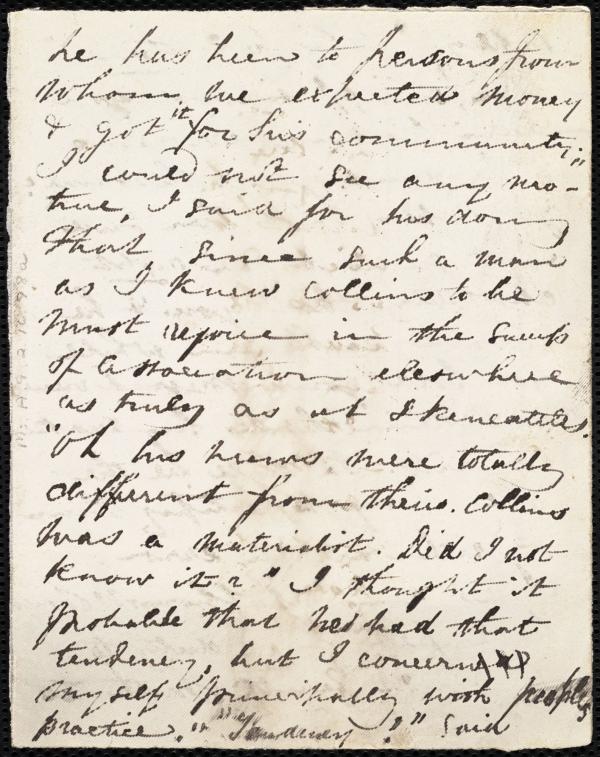 he has been to persons from
whom we expected money
& got it for his community;"
I could not see any mo-
tive, I said for his doing
that since such a man
as I knew Collins to be
must rejoice in the success
of Association elsewhere
as truly as at Skeneatteles.
"Oh his views were totally
different from theirs. Collins
was a materialist. Did I not
know it?" I thought it
probable that he had that
tendency, but I concern
myself principally with peoples
practice." " ?" Said